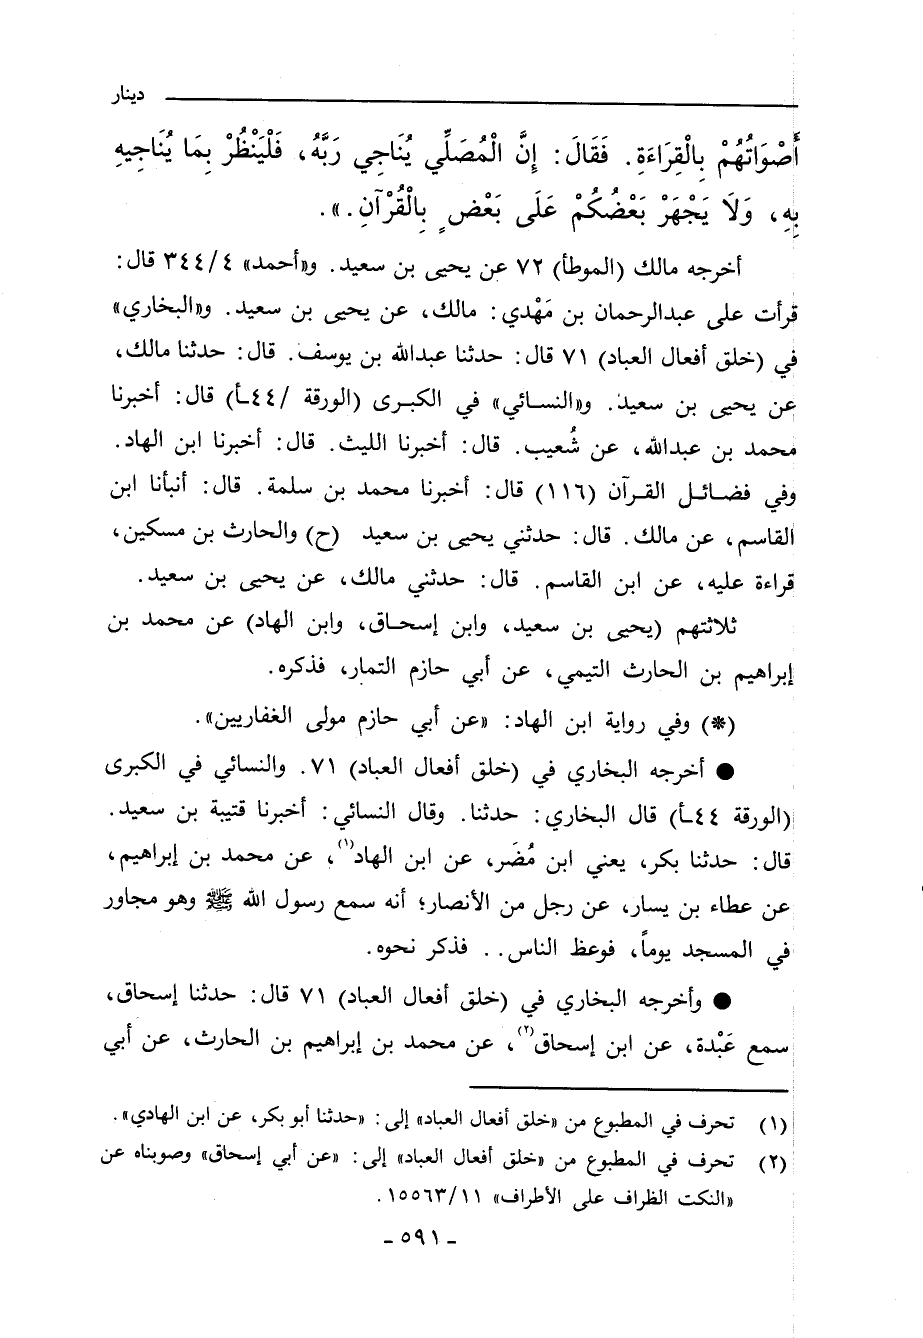 دينار
أَصْوَاتُهُمْ بِالْقِرَاءَةِ. فَقَالَ: إِنَّ الْمُصَلِّي يُنَاجِي رَبَّهُ، فَلْيَنْظُرْ بِمَا يُنَاجِيهِ
بِهِ، وَلَا يَجْهَرْ بَعْضُكُمْ عَلَى بَعْضٍ بِالْقُرْآنِ.».
أخرجه مالك (الموطأ) ٧٢ عن يحيى بن سعيد. و«أحمد» ٣٤٤/٤ قال:
قرأت على عبدالرحمان بن مَهْدي: مالك، عن يحيى بن سعيد. و«البخاري»
في (خلق أفعال العباد) ٧١ قال: حدثنا عبدالله بن يوسف. قال: حدثنا مالك،
عن يحيى بن سعيد. و«النسائي» في الكبرى (الورقة /٤٤ـأ) قال: أخبرنا
محمد بن عبدالله، عن شُعيب. قال: أخبرنا الليث. قال: أخبرنا ابن الهاد.
وفي فضائل القرآن (١١٦) قال: أخبرنا محمد بن سلمة. قال: أنبأنا ابن
القاسم، عن مالك. قال: حدثني يحيى بن سعيد (ح) والحارث بن مسكين،
قراءة عليه، عن ابن القاسم. قال: حدثني مالك، عن يحيى بن سعيد.
ثلاثتهم (يحيى بن سعيد، وابن إسحاق، وابن الهاد) عن محمد بن
إبراهيم بن الحارث التيمي، عن أبي حازم التمار، فذكره.
(*) وفي رواية ابن الهاد: «عن أبي حازم مولى الغفاريين».
● أخرجه البخاري في (خلق أفعال العباد) ٧١. والنسائي في الكبرى
(الورقة ٤٤ـأ) قال البخاري: حدثنا. وقال النسائي: أخبرنا قتيبة بن سعيد.
قال: حدثنا بكر، يعني ابن مُضَر، عن ابن الهاد(١)، عن محمد بن إبراهيم،
عن عطاء بن يسار، عن رجل من الأنصار؛ أنه سمع رسول الله ﷺ وهو مجاور
في المسجد يوماً، فوعظ الناس.. فذكر نحوه.
● وأخرجه البخاري في (خلق أفعال العباد) ٧١ قال: حدثنا إسحاق،
سمع عَبْدة، عن ابن إسحاق(٢)، عن محمد بن إبراهيم بن الحارث، عن أبي
(١) تحرف في المطبوع من «خلق أفعال العباد» إلى: «حدثنا أبو بكر، عن ابن الهادي».
(٢) تحرف في المطبوع من «خلق أفعال العباد» إلى: «عن أبي إسحاق» وصوبناه عن
«النكت الظراف على الأطراف» ١٥٥٦٣/١١.
ـ ٥٩١ ـ